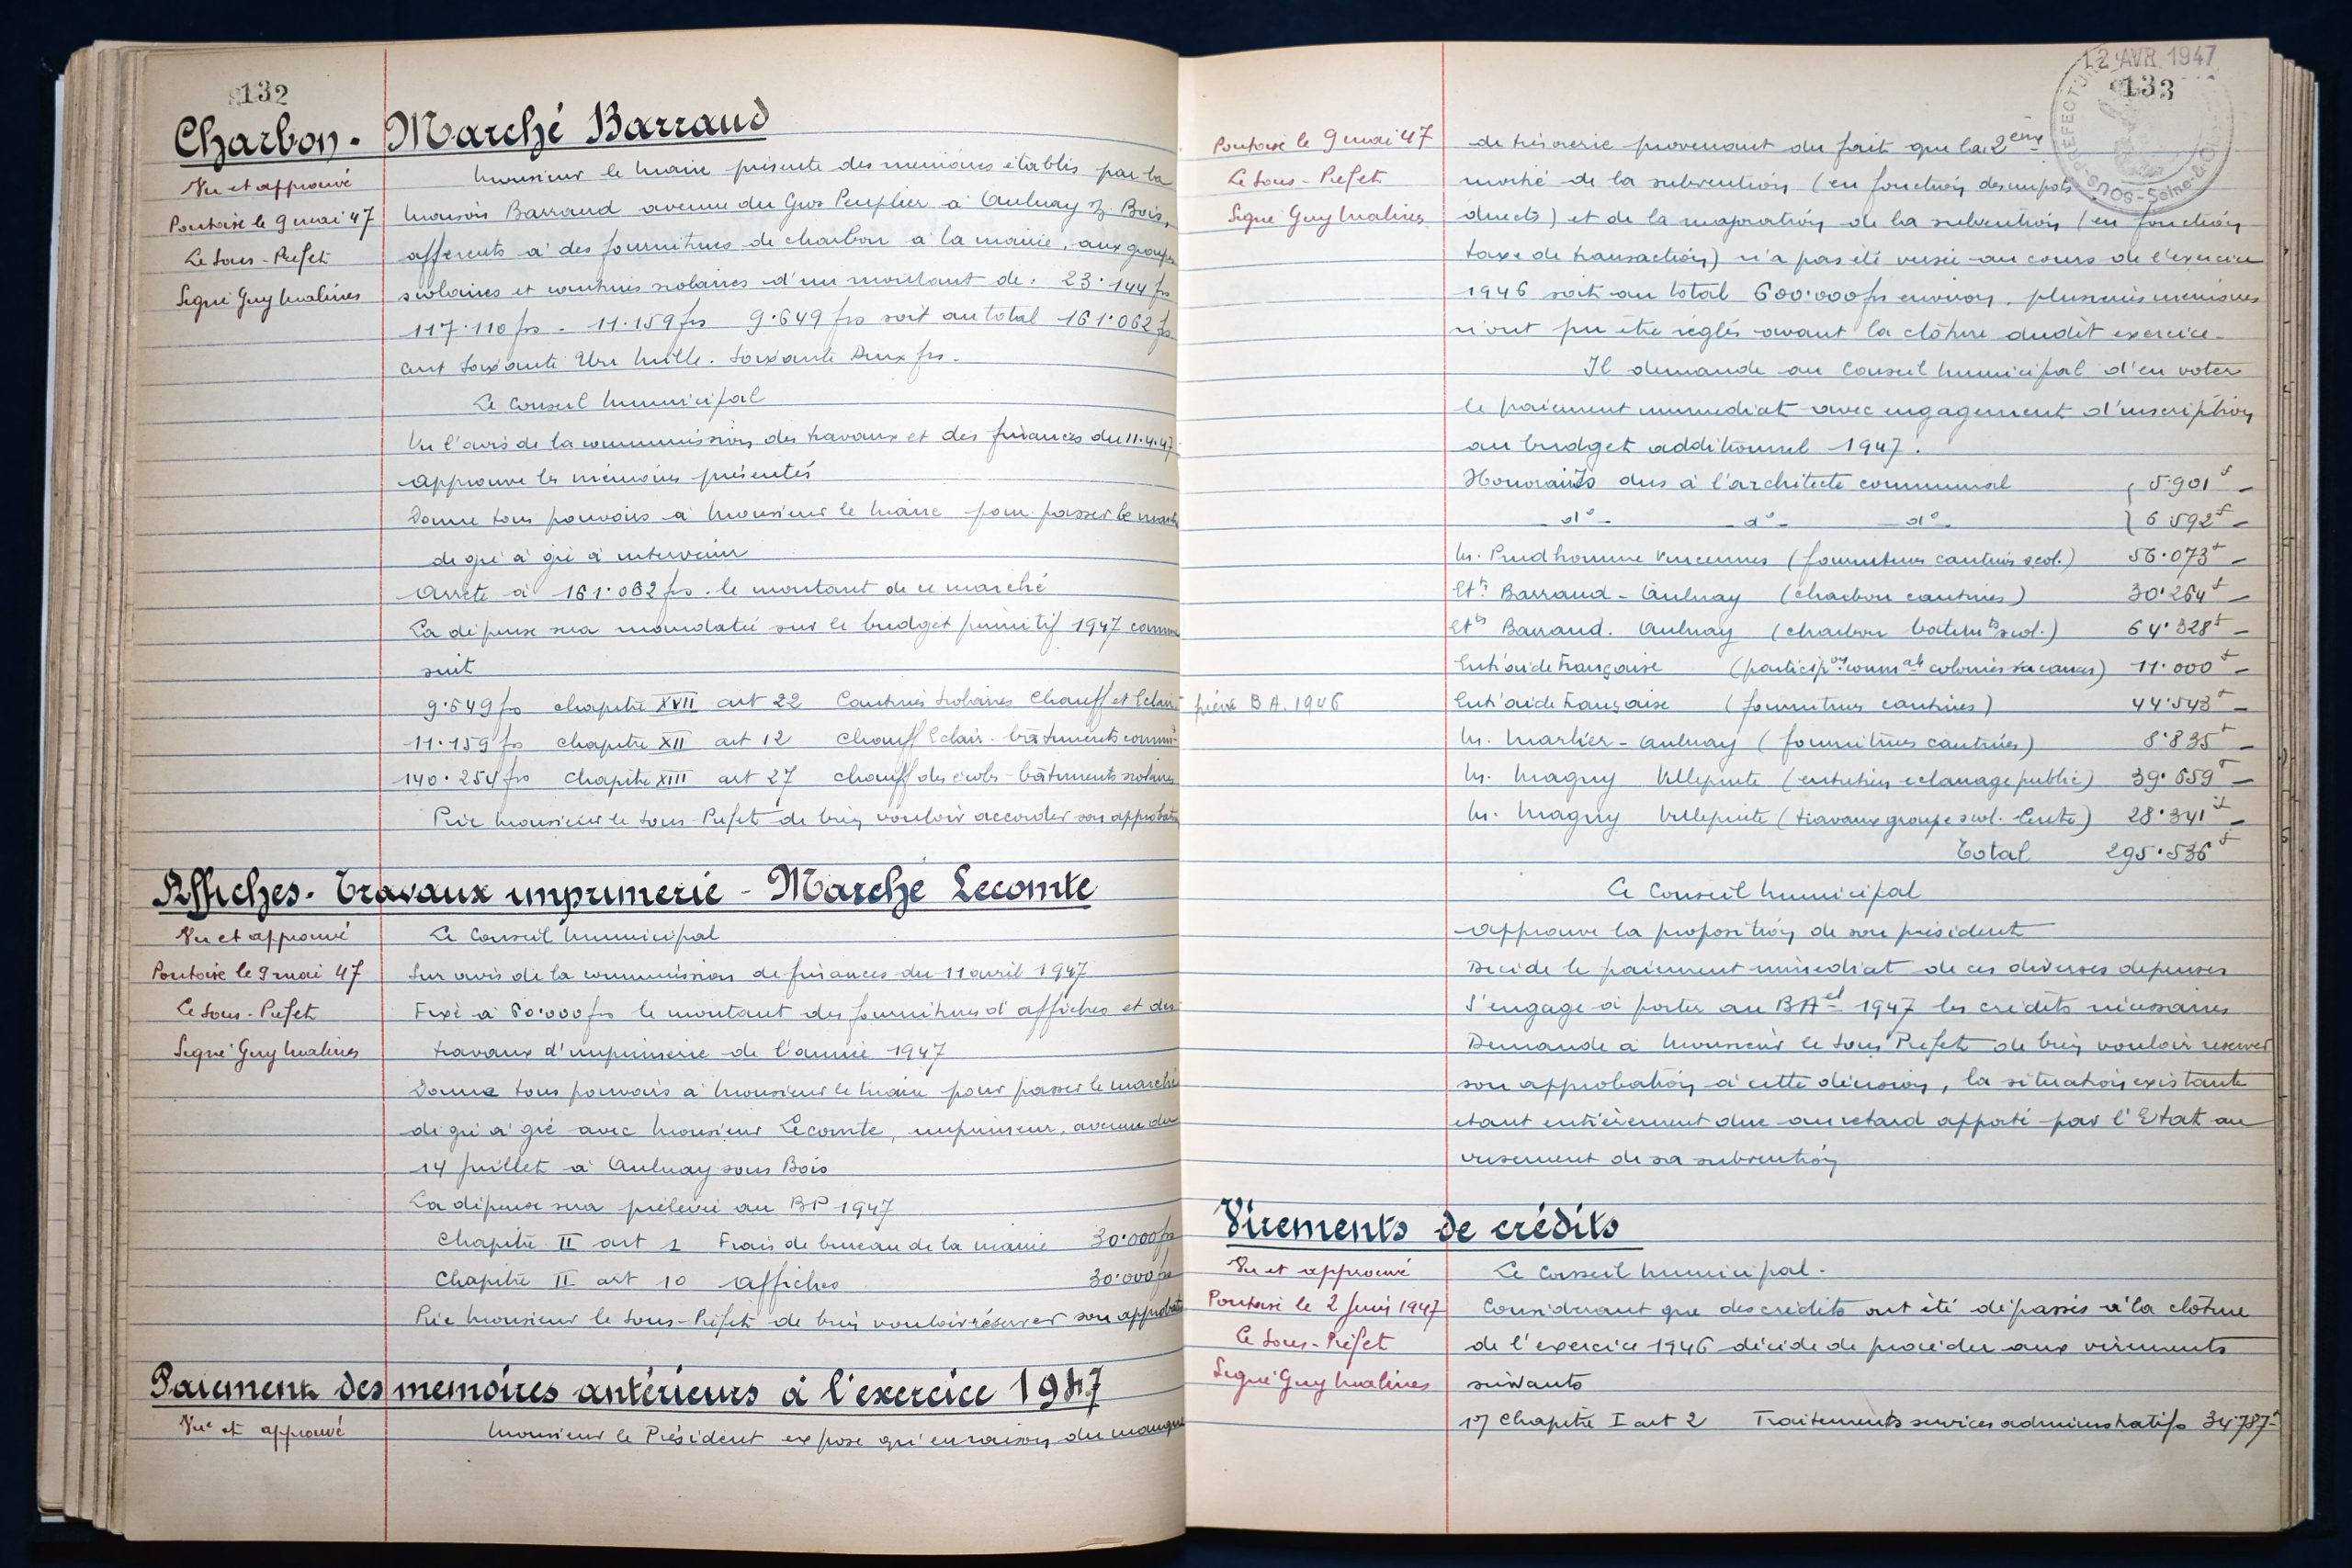 132
Charbon - Marché Barraud
Vu et approuvé
Pontoise le 9 mai 47
Le Sous-Préfet
Signé Guy Malines
Monsieur le Maire présente des mémoires établis par la
Maison Barraud avenue du Gros Peuplier à Aulnay s. Bois,
afférents à des fournitures de charbon à la mairie, aux groupes
scolaires et cantines scolaires d'un montant de : 23.144 frs
117.110 frs - 11.159 frs 9.649 frs soit au total 161.062 frs
cent soixante Un Mille. Soixante Deux frs.
Le Conseil Municipal
Vu l'avis de la commission des travaux et des finances du 11.4.47
Approuve les mémoires présentés
Donne tous pouvoirs à Monsieur le Maire pour passer le marché
de gré à gré à intervenir
Arrête à 161.062 frs. le montant de ce marché
La dépense sera mandatée sur le budget primitif 1947 comme
suit
9.649 frs chapitre XVII art 22 Cantines scolaires Chauff et Eclair
11.159 frs chapitre XII art 12 Chauff Eclair. bâtiments comm
140.254 frs chapitre XIII art 27 chauff des écoles - bâtiments scolaires
Prie Monsieur le Sous-Préfet de bien vouloir accorder son approbation
Affiches. Travaux imprimerie - Marché Lecomte
Vu et approuvé
Pontoise le 9 mai 47
Le Sous-Préfet
Signé Guy Malines
Le Conseil Municipal
Sur avis de la commission de finances du 11 avril 1947
Fixe à 60.000 frs le montant des fournitures d'affiches et des
travaux d'imprimerie de l'année 1947
Donne tous pouvoirs à Monsieur le Maire pour passer le marché
de gré à gré avec Monsieur Lecomte, imprimeur, avenue du
14 Juillet à Aulnay sous Bois
La dépense sera prélevée au BP 1947
Chapitre II art 1 Frais de bureau de la mairie 30.000 frs
Chapitre II art 10 Affiches 30.000 frs
Prie Monsieur le Sous-Préfet de bien vouloir réserver son approbation
Paiement des mémoires antérieurs à l'exercice 1947
Vu et approuvé
Monsieur le Président expose qu'en raison du manque
12 AVR 1947
133
SOUS-PRÉFECTURE
Seine-&-Oise
Pontoise le 9 mai 47
Le Sous-Préfet
Signé Guy Malines
de trésorerie provenant du fait que la 2ème
moitié de la subvention (en fonction des impôts
directs) et de la majoration de la subvention (en fonction
taxe de transaction) n'a pas été versée au cours de l'exercice
1946 soit au total 600.000 frs environ, plusieurs mémoires
n'ont pu être réglés avant la clôture dudit exercice.
Il demande au Conseil Municipal d'en voter
le paiement immédiat avec engagement d'inscription
au budget additionnel 1947.
Honoraires dus à l'architecte communal 5.901 f
-d°- -d°- -d°- 6.592 f
M. Prudhomme Vincennes (fournitures cantines scol.) 56.073 f
Ets Barraud - Aulnay (charbon cantines) 30.264 f
Ets Barraud. Aulnay (charbon batim ts scol.) 64.328 f
Entr'aide Française (particip on comm ale colonies vacances) 11.000 f
prévu B A. 1946
Entr'aide Française (fournitures cantines) 44.543 f
M. Marlier - Aulnay (fournitures cantines) 8.835 f
M. Magny Villepinte (entretien eclairage public) 39.659 f
M. Magny Villepinte (travaux groupe scol. Centre) 28.341 f
Total 295.536 f
Le Conseil Municipal
Approuve la proposition de son président
Décide le paiement immédiat de ces diverses dépenses
S'engage à porter au BA el 1947 les crédits nécessaires
Demande à Monsieur le Sous Préfet de bien vouloir réserver
son approbation à cette décision, la situation existante
étant entièrement due au retard apporté par l'Etat au
versement de sa subvention
Virements de crédits
Vu et approuvé
Pontoise le 2 Juin 1947
Le Sous-Préfet
Signé Guy Malines
Le Conseil Municipal.
Considérant que des crédits ont été dépassés à la clôture
de l'exercice 1946 décide de procéder aux virements
suivants
1°/ Chapitre I art 2 Traitements services administratifs 34.787 f